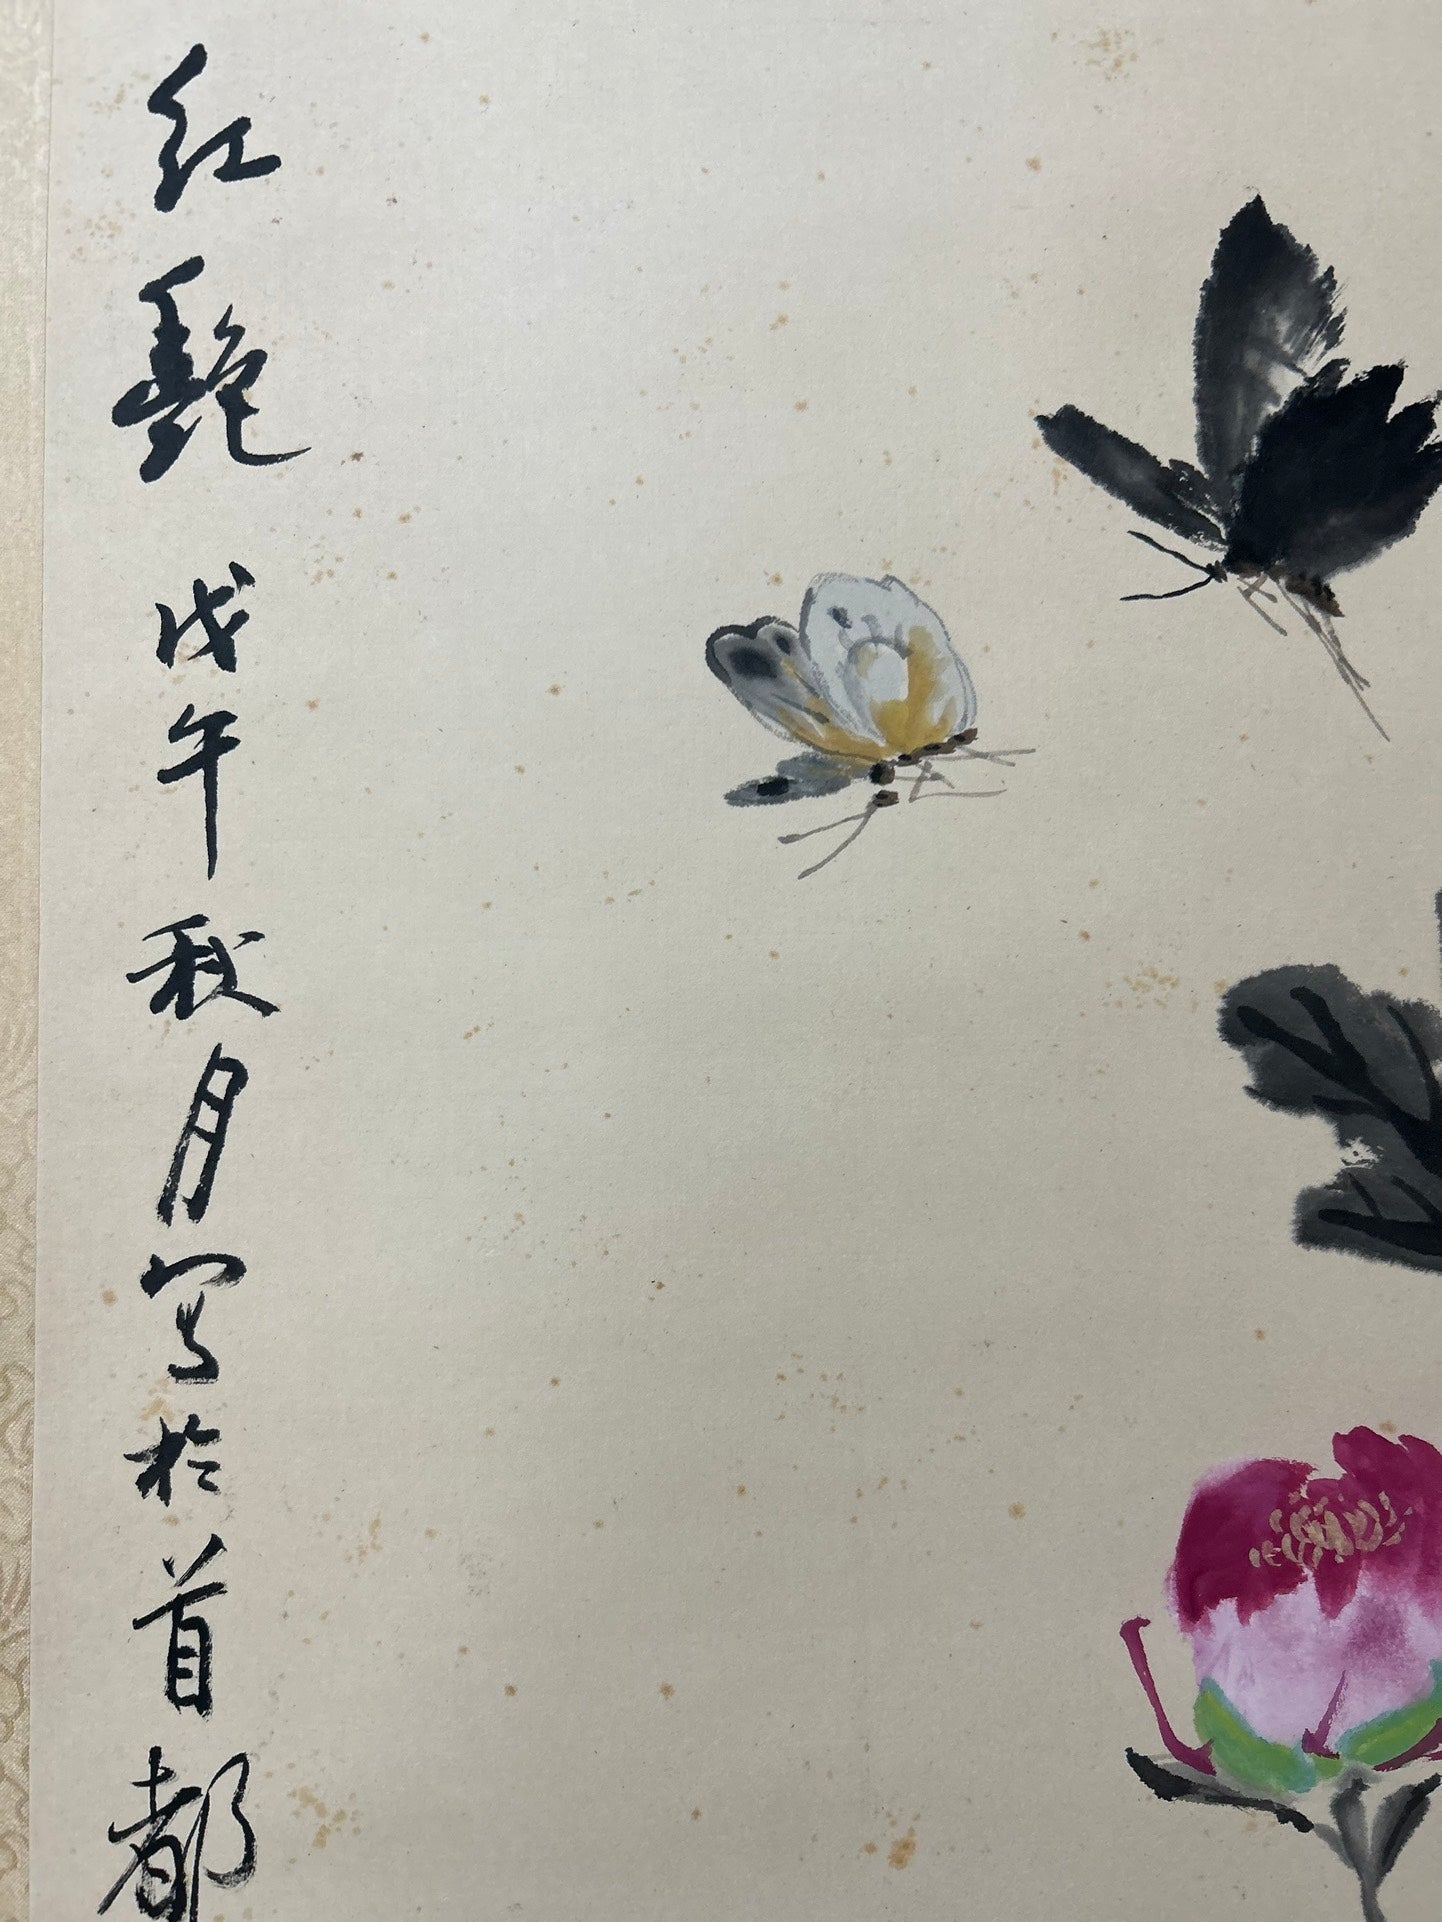 红艷戊午秋月写於首都